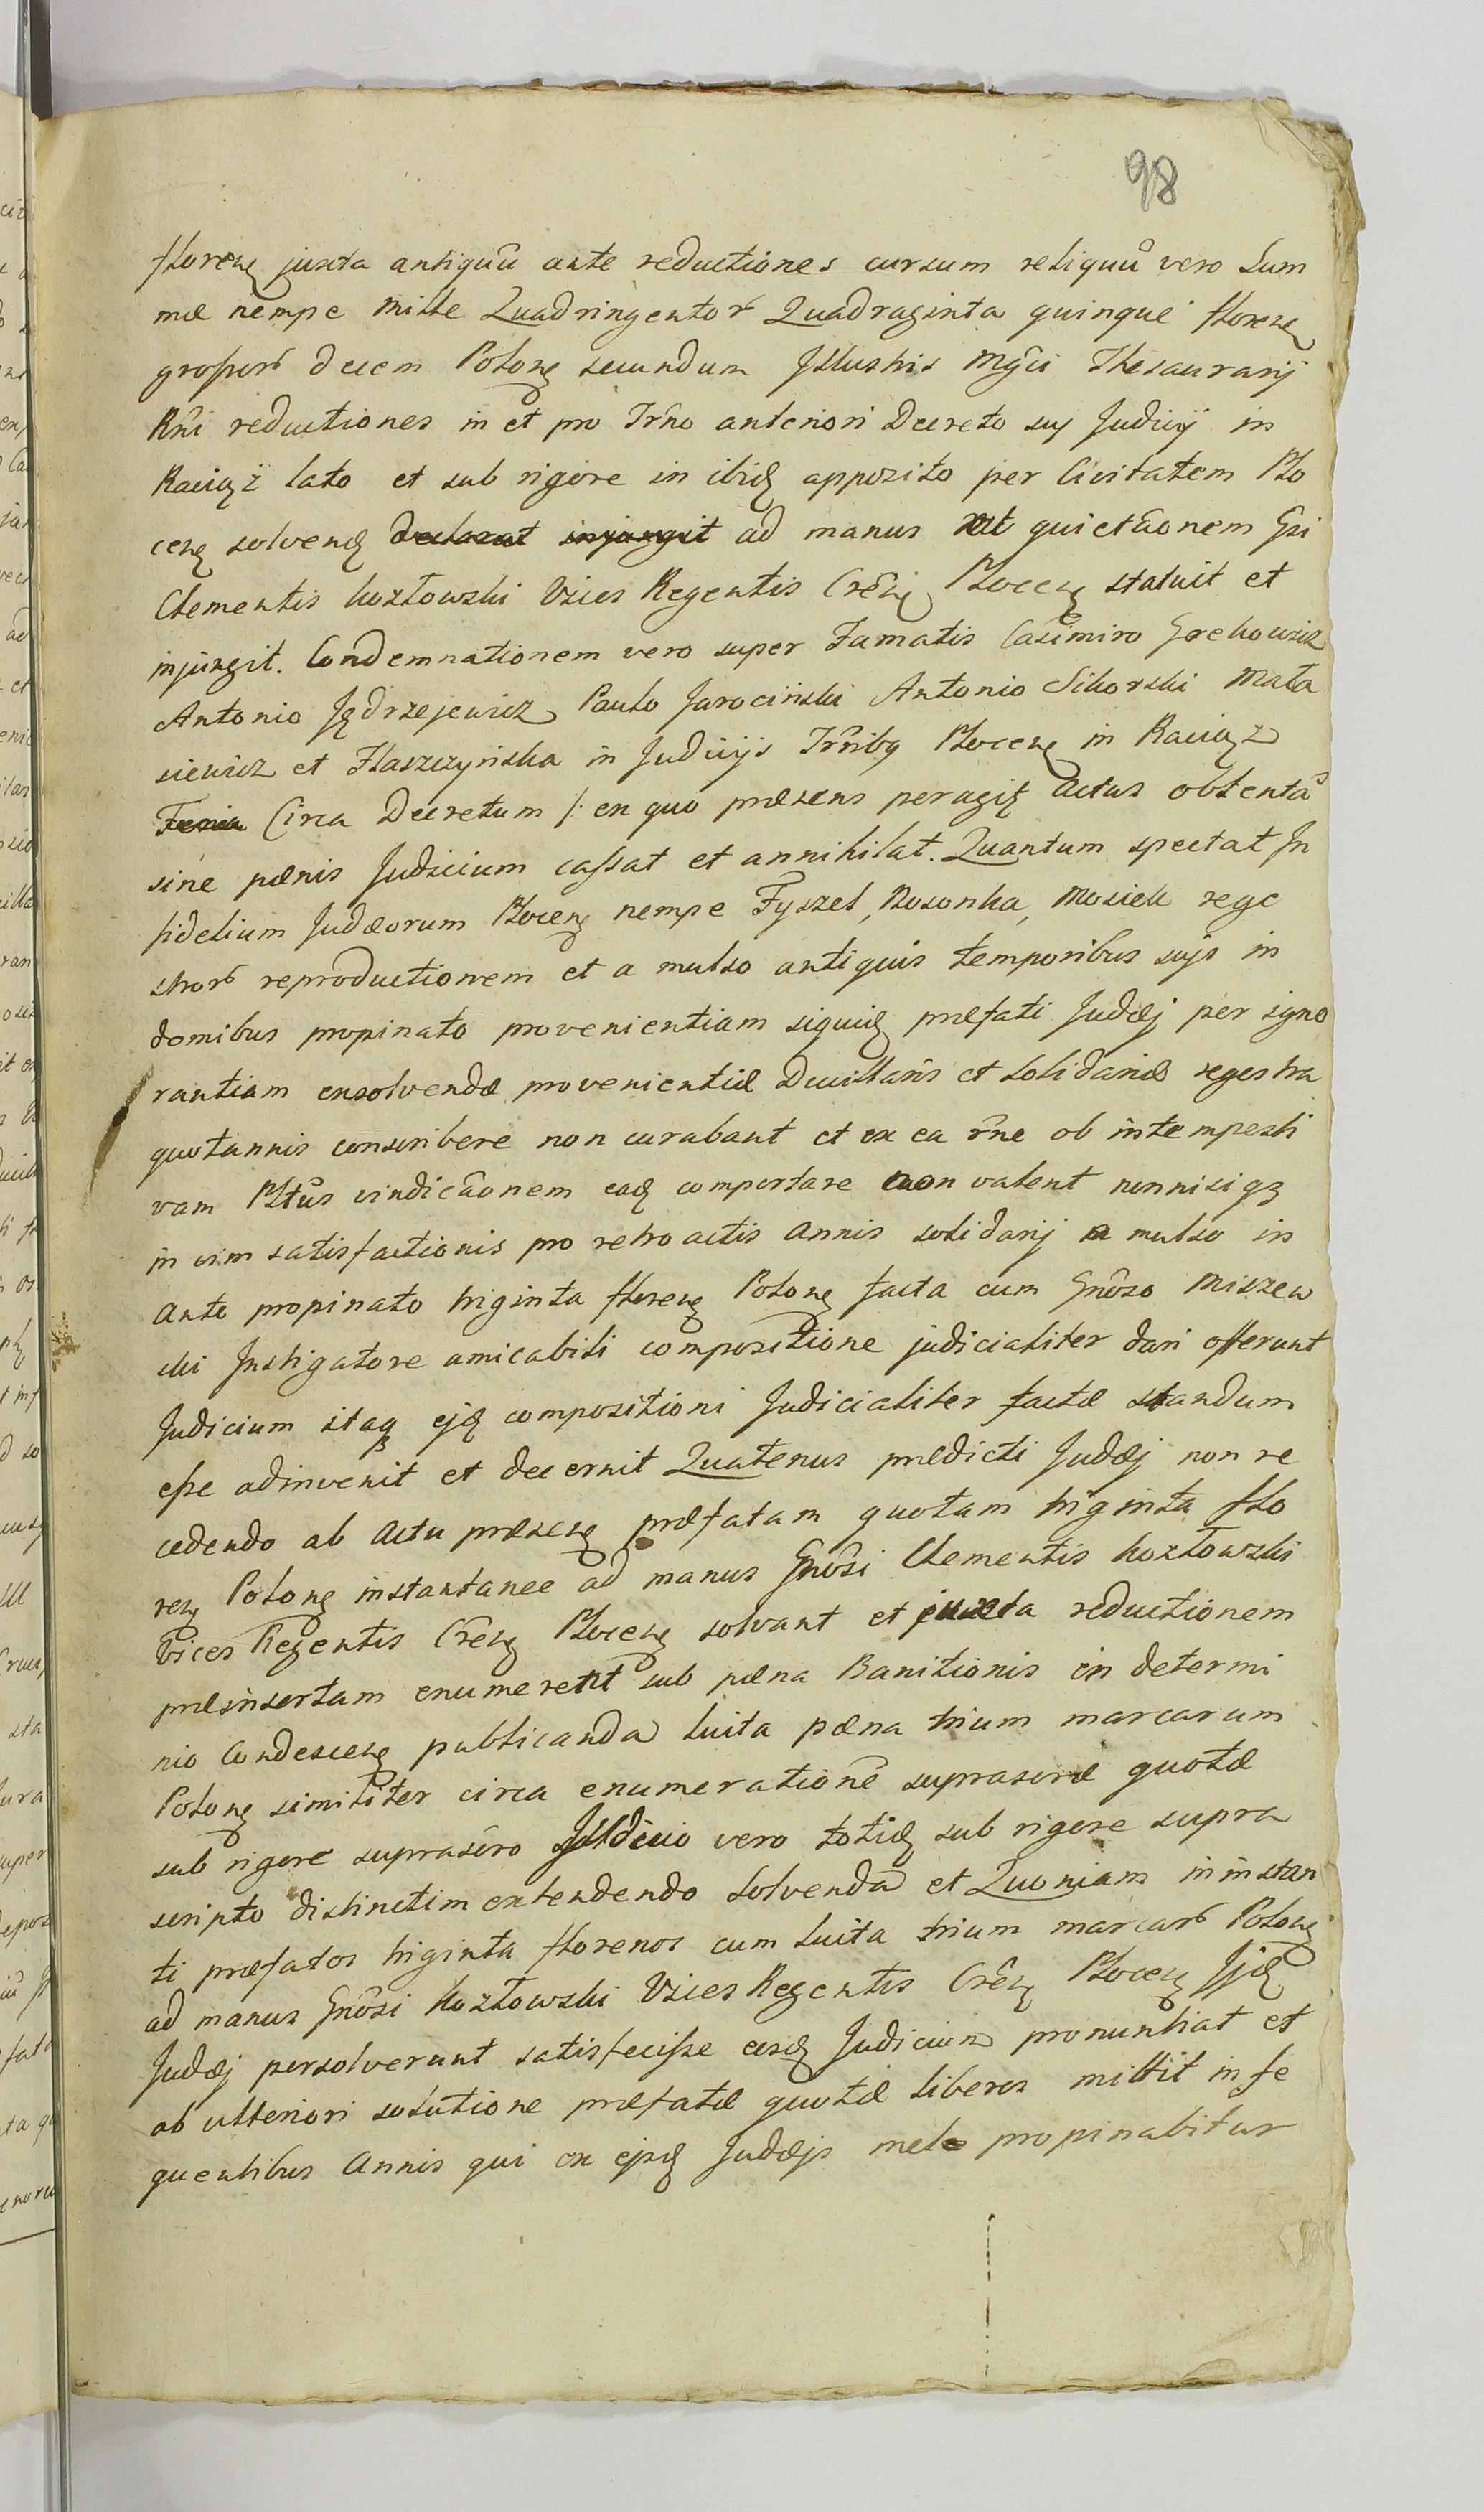 98
florenꝫ juxta antiquū ante reductiones cursum reliquū vero Sum
mæ nempe mille Quadringentor Quadraginta quinque florenꝫ
grossor decem Polonꝫ secundum Illustris Mgci Thesaurarij
Rñi reductiones in et pro Trño anteriori Decreto suj Judicij in
Raciąż lato et sub rigore in ibidꝫ apposito per Civitatem Plo
cenꝫ solvendꝫ declarat injungit ad manus et quietãonem Gsi
Clementis Kozłowski Vices Regentis Crẽnꝫ Plocenꝫ statuit et
injungit. Condemnationem vero super Famatis Casimiro Grekowicz
Antonio Jędrzejewicz Paulo Jarociński Antonio Sikorski Mata
siewicz et Flaszczyńska in Judicijs Trñibꝫ Plocenꝫ in Raciąż
Feria Circa Decretum /: ex quo præsens peragitꝫ Actus obtentã
sine pænis Judicium cassat et annihilat. Quantum spectat In
fidelium Judæorum Plocenꝫ nempe Fyszel, Rosonka, Mosiek rege
stror reproductionem et a mulso antiquis temporibus suis in
domibus propinato provenientiam siquidꝫ præfati Judæj per igno
rantiam exsolvendæ provenientiæ Ducillaris et Solidariæ regestra
quotannis conscribere non curabant et ex ea rñe ob intempesti
vam Pltũs vindicãonem eadꝫ comportare non valent nonnisiqꝫ
in vim satisfactionis pro retroactis annis solidarij a mulso in
ante propinato triginta florenꝫ Polonꝫ facta cum Gnõso Miszew
ski Instigatore amicabili compositione judicialiter dari offerunt
Judicium itaqꝫ ejdꝫ compositioni Judicialiter factæ standum
esse adinvenit et decernit Quatenus prædicti Judæj non re
cedendo ab actu præsenꝫ præfatam quotam triginta flo
renꝫ Polonꝫ instantanee ad manus Gnõsi Clementis Kozłowski
Vices Regentis Crẽnꝫ Plocenꝫ solvant et juxta reductionem
præinsertam enumerent sub pæna Banitionis in determi
nio Condescenꝫ publicanda luita pæna trium marcarum
Polonꝫ similiter circa enumerationẽ suprascriæ quotæ
sub rigore suprascro Judicio vero totidꝫ sub rigore supra
scripto distinctim extendendo solvenda et Quoniam in instan
ti præfatos triginta florenos cum luita trium marcar Polonꝫ
ad manus Gnõsi Kozłowski Vices Regentis Crẽnꝫ Plocenꝫ Ijdꝫ
Judæj persolverunt satisfecisse eosdꝫ Judicium pronuntiat et
ab ulteriori solutione præfatæ quotæ liberos mittit in se
quentibus Annis qui ex ejsdꝫ Judæjs mel propinabitur